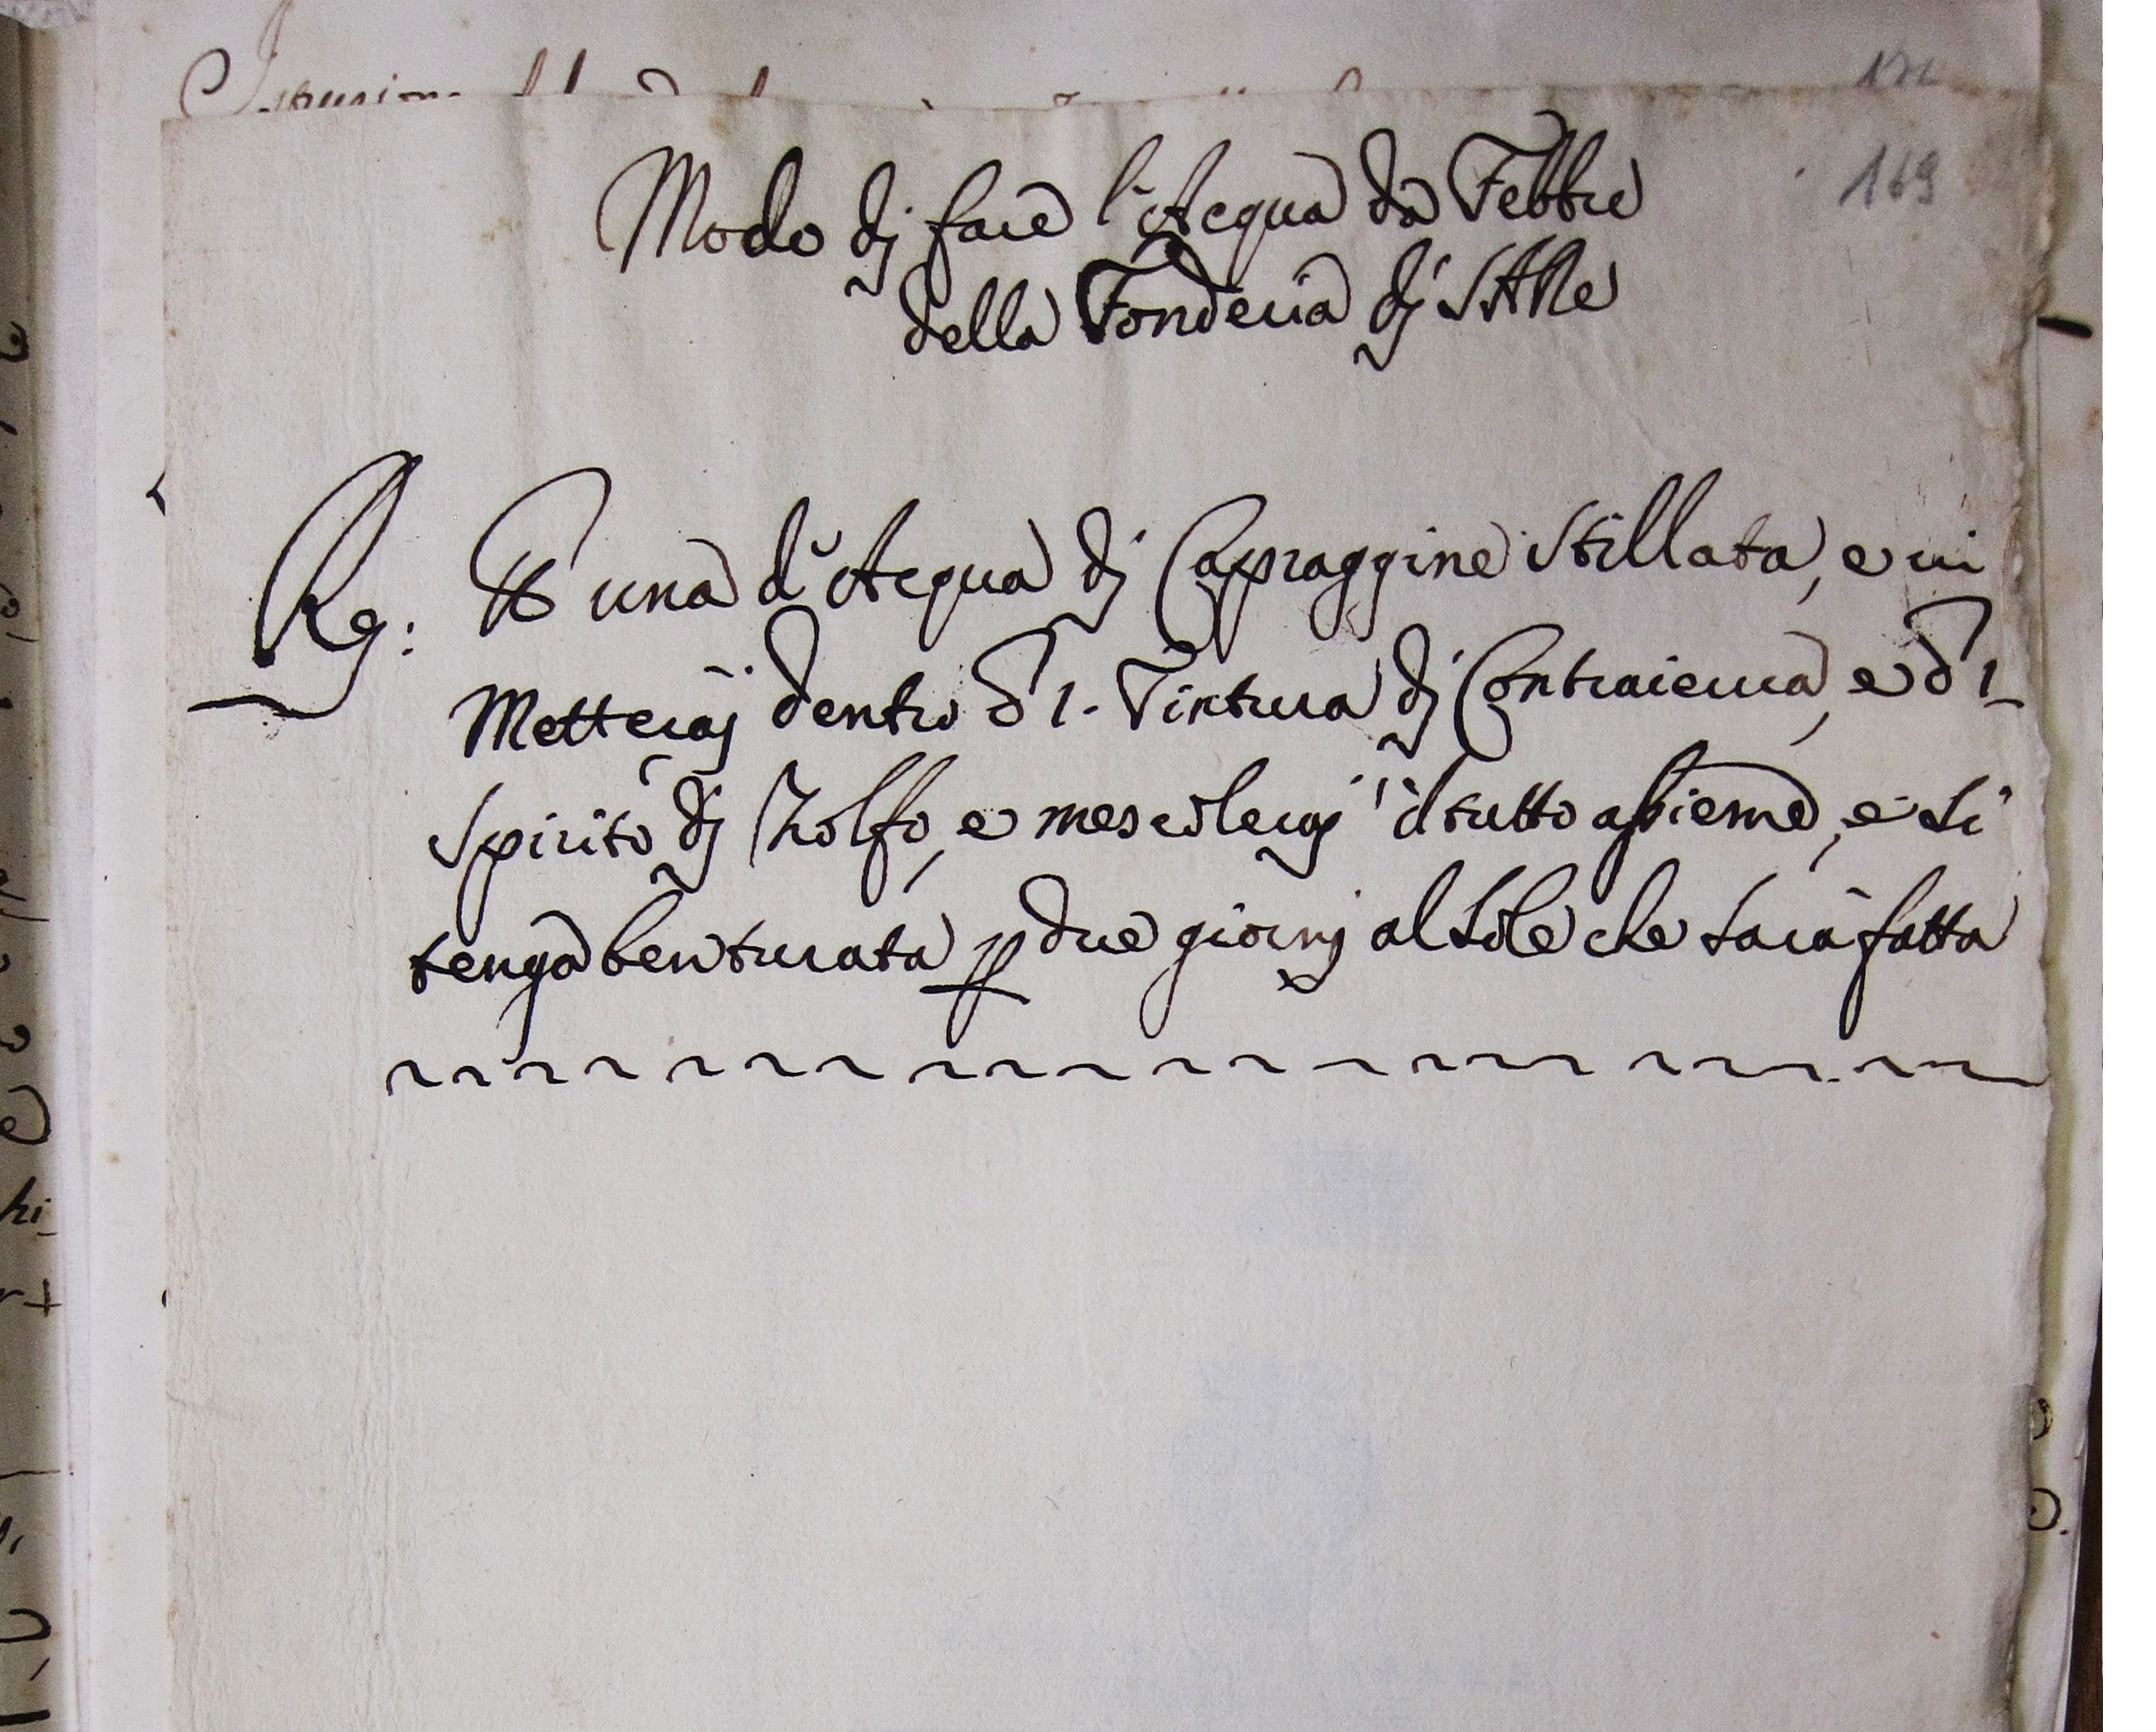 172
169
Modo dj fare l'Acqua da Febbre
della Fonderia dj SAR
Rx: ℔ una d'Acqua dj Capraggine stillata, e vi
Metteraj dentro ʒ 1. Tintura dj Contraierva, e ʒ 1
Spirito dj Zolfo, e mescileraj il tutto assieme, e si
tenga ben turata p due giornj al sole che sarà fatta